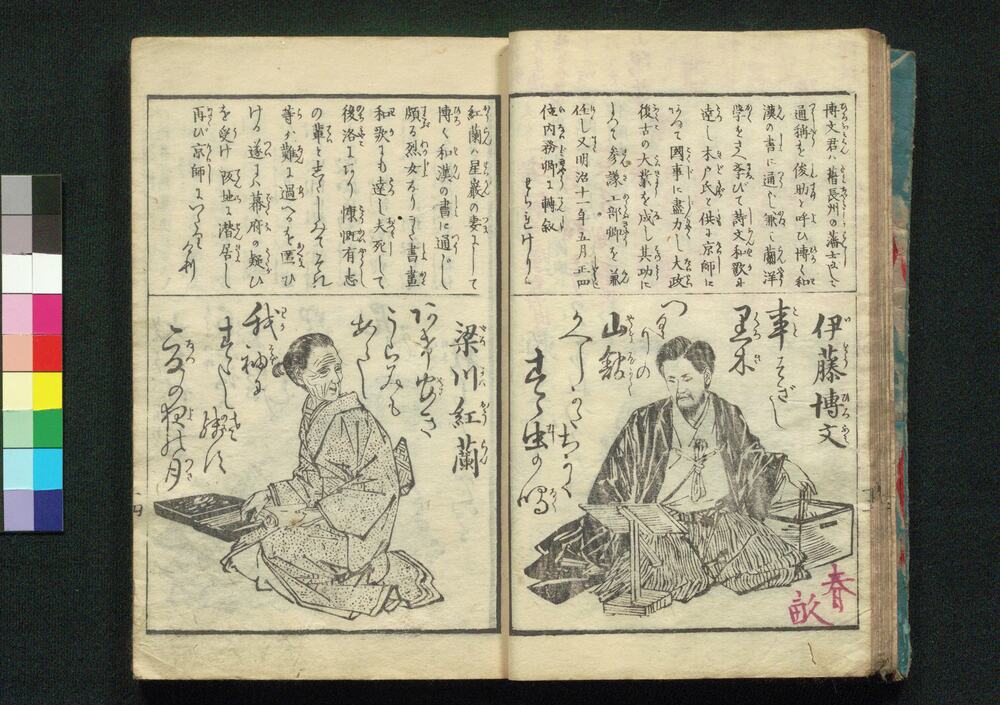 博文君ハ舊長州の藩士にして
通稱を俊助と呼ひ博く和
漢の書に通じ兼て蘭洋
學をさへ学びて詩文和歌に
達し木戸氏と供に京師に
在つて國事に盡力し大政
復古の大業を成し其功に
よつて參議工部卿を兼
任し又明治十一年五月正四
位内務卿に轉叙
せられけり
伊藤博文
事そぎし
黒木
つくりの
山舘
かべしたちかく
すゞ虫の鳴
春畝
紅蘭ハ星巖の妻にして
博く和漢の書に通じ
頗る烈女なりまた書畫
和歌にも達し夫死して
後洛にあり慷慨有志
の輩としたしみてそれ
等が難に過へるを匿ひ
ける遂に幕府の疑ひ
を受け阪地に潜居し
再び京師に
梁川紅蘭
うらみも
我袖に
すゞし
夏の夜の月